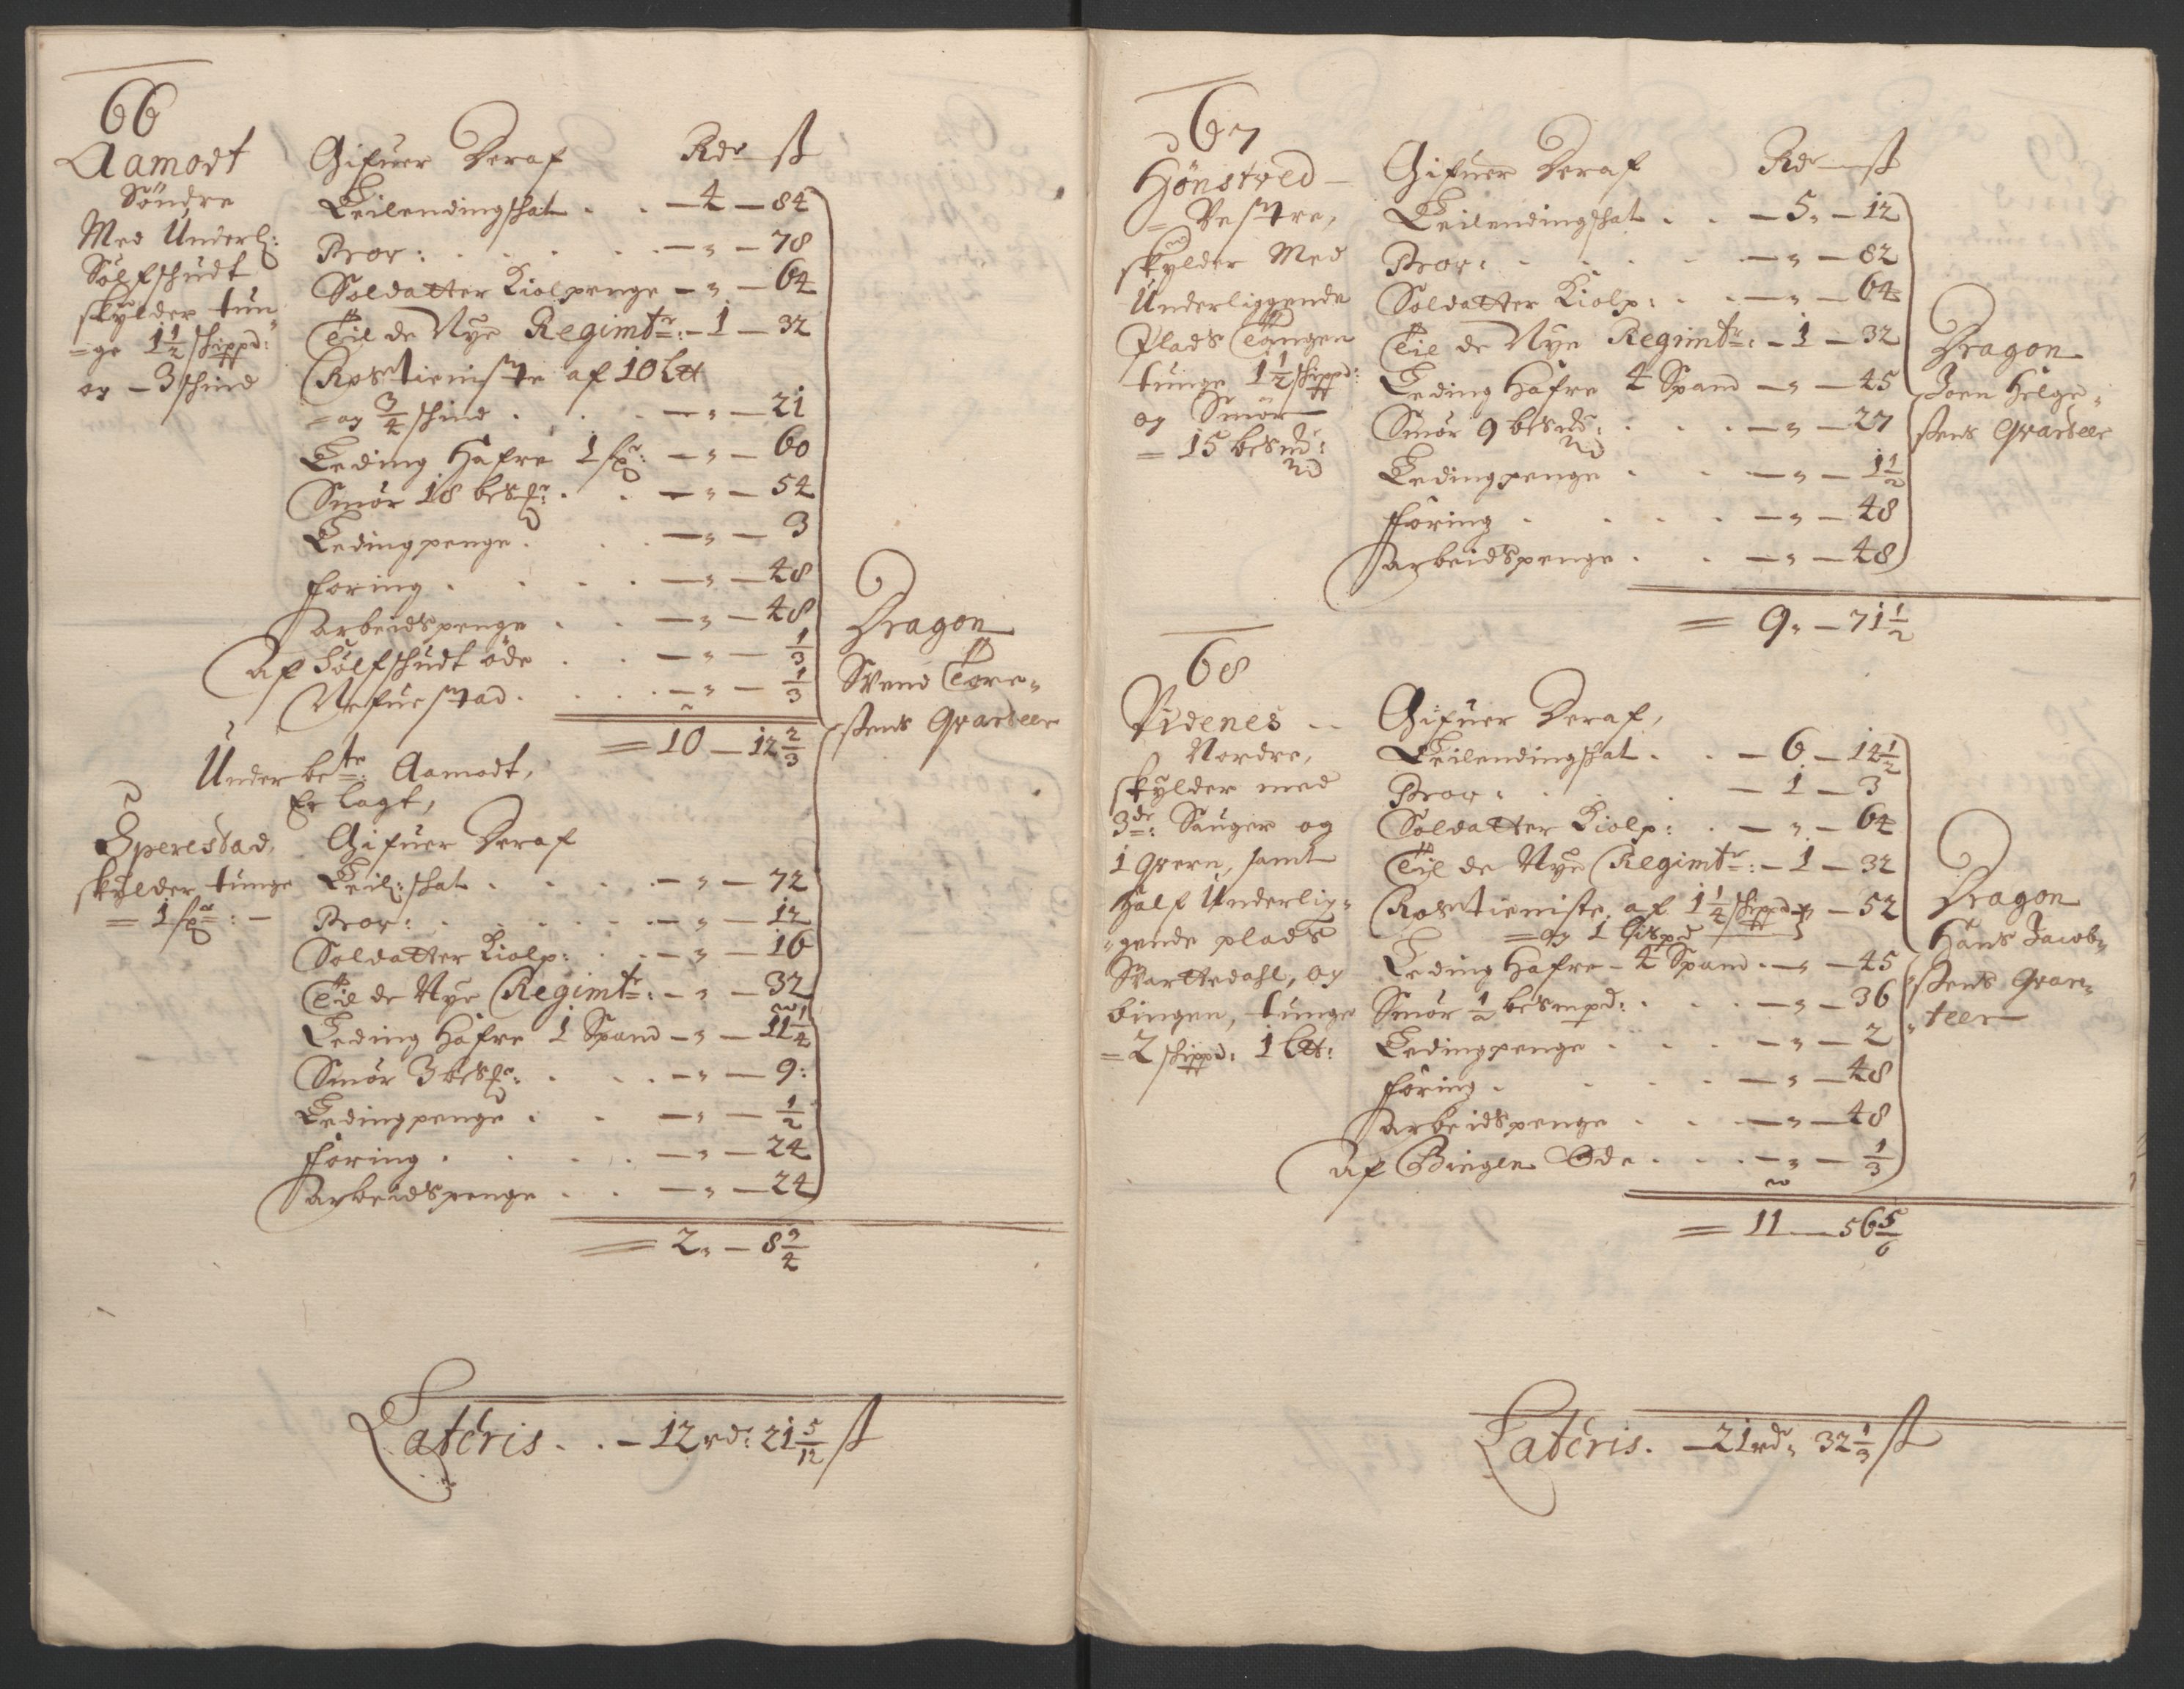 66
Aamodt
Söndre
Med Underl:
Sölfschudt
skylder tun
=ge 1 1/2 schippd:
og — 3 schind
Gifuer Deraf Rdr ß
Leilendingschat . . — 4 — 84
Prov: . . . . — " — 78
Soldatter Kiolpenge — " — 64
Til de Nye Regimtr: — 1 — 32
Rostieniste af 10 Ltt
= og 3/4 schind . . . — " — 21
Leding Hafre 1 spr: — " — 60
Smör 18 besr: . . — " — 54
Ledingpenge . . . — " — 3
foring . . . . — " — 48
arbeidspenge . . — " — 48
Af Sölfschudt öde . . — " — 1/3
Nefuestad . . . . — " — 1/3
= 10 — 12 2/3
Dragon
Svend Tore=
ßens Qvarteer
Under bete: Aamodt,
Er lagt,
Sperestad,
skylder tunge
= 1 spr: —
Gifuer Deraf
Leil: schat . . . . — " — 72
Prov: . . . . . — " — 12
Soldatter Kiolp: . . — " — 16
Til de Nye Regimtr: — " — 32
Leding Hafre 1 Spand — " — 11 1/4
Smör 3 besr: . . . — " — 9:
Ledingpenge . . — " — 1/2
foring . . . . — " — 24
arbeidspenge . . — " — 24
= 2 " — 8 3/4
Lateris . . — 12 rd: 21 5/12 ß
67
Hönstved —
= Vestre,
skylder Med
Underliggende
Plads Tangen
tunge 1 1/2 schippd:
og Smör
= 15 besmr:
Gifuer Deraf Rdr — ß
Leilendingschat . . — 5 " — 12
Prov: . . . . . — " — 82
Soldatter Kiolp: . . — " — 64
Til de Nye Regimtr: — 1 — 32
Leding Hafre 4 Spand — " — 45
Smör 9 besmr: . . . — " — 27
Ledingpenge . . . — " — 1 1/2
foring . . . . — " — 48
arbeidspenge . . — " — 48
= 9 " — 71 1/2
Dragon
Joen Helge=
ßens Qvarteer
68
Videnes . .
Nordre,
skylder med
3de: Sauger og
1 Qvern, samt
half Underlig=
=gende plads
Svartedahl, og
bingen, tunge
= 2 schippd: 1 Ltt:
Gifuer Deraf,
Leilendingschat . . — 6 — 14 1/2
Prov: . . . . — 1 — 3
Soldatter Kiolp: . — " — 64
Til de Nye Regimtr: — 1 — 32
Rostieniste af 1 1/4 schippd — 52
= og 1 Lispd
Leding Hafre — 4 Spand . — " — 45
Smör 1/2 besmpd: . . — " — 36
Ledingpenge . . . — " — 2
foring . . . . — " — 48
arbeidspenge . . . — " — 48
Af Bingen Öde . . . — " — 1/3
= 11 — 56 5/6
Dragon
Hans Jacob=
ßens Qvar=
=teer
Lateris . — 21 rdr 32 1/3 ß